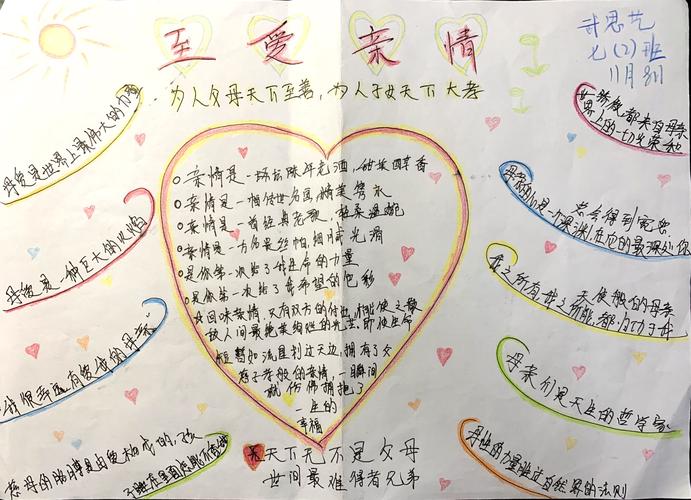 至爱亲情
思艺
七(2)班
11月8日
为人父母天下至善，为人子女天下大孝
母爱是世界上最伟大的力量
母爱是一种巨大的火焰
慈母的胳膊是由爱构成的，孩
世界上的一切光荣和
都来自母亲
母亲的心是一个深渊，在它的最深处你
总会得到宽恕
我之所有，我之所能，都归功于我
天使般的母亲
母亲们是天生的哲学家
母性的力量胜过自然界的法则
○亲情是一坛陈年老酒，甜美回味香
○亲情是一幅传世名画，精美隽永
○亲情是一首经典老歌，轻柔温婉
○亲情是一方名贵丝帕，细腻光滑
○是你第一次给了我生命的力量
○是你第一次给了我希望的色彩
○回味亲情，只有双方的付出，
人间最绝美绚烂的光芒，即使生命
短暂如流星划过天边，拥有了父
慈子孝般的亲情，一瞬间
就仿佛拥抱了
一生的
幸福
天下无不是父母
世间最难得者兄弟